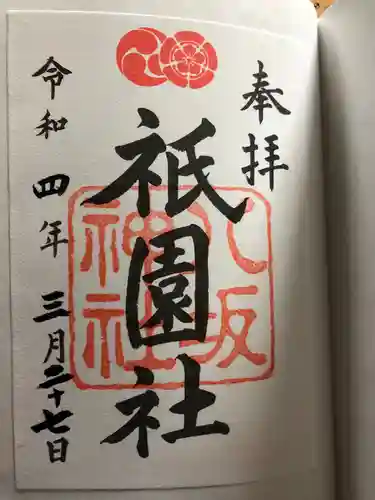 奉拝
八坂
神社
祇園社
令和四年三月二十七日